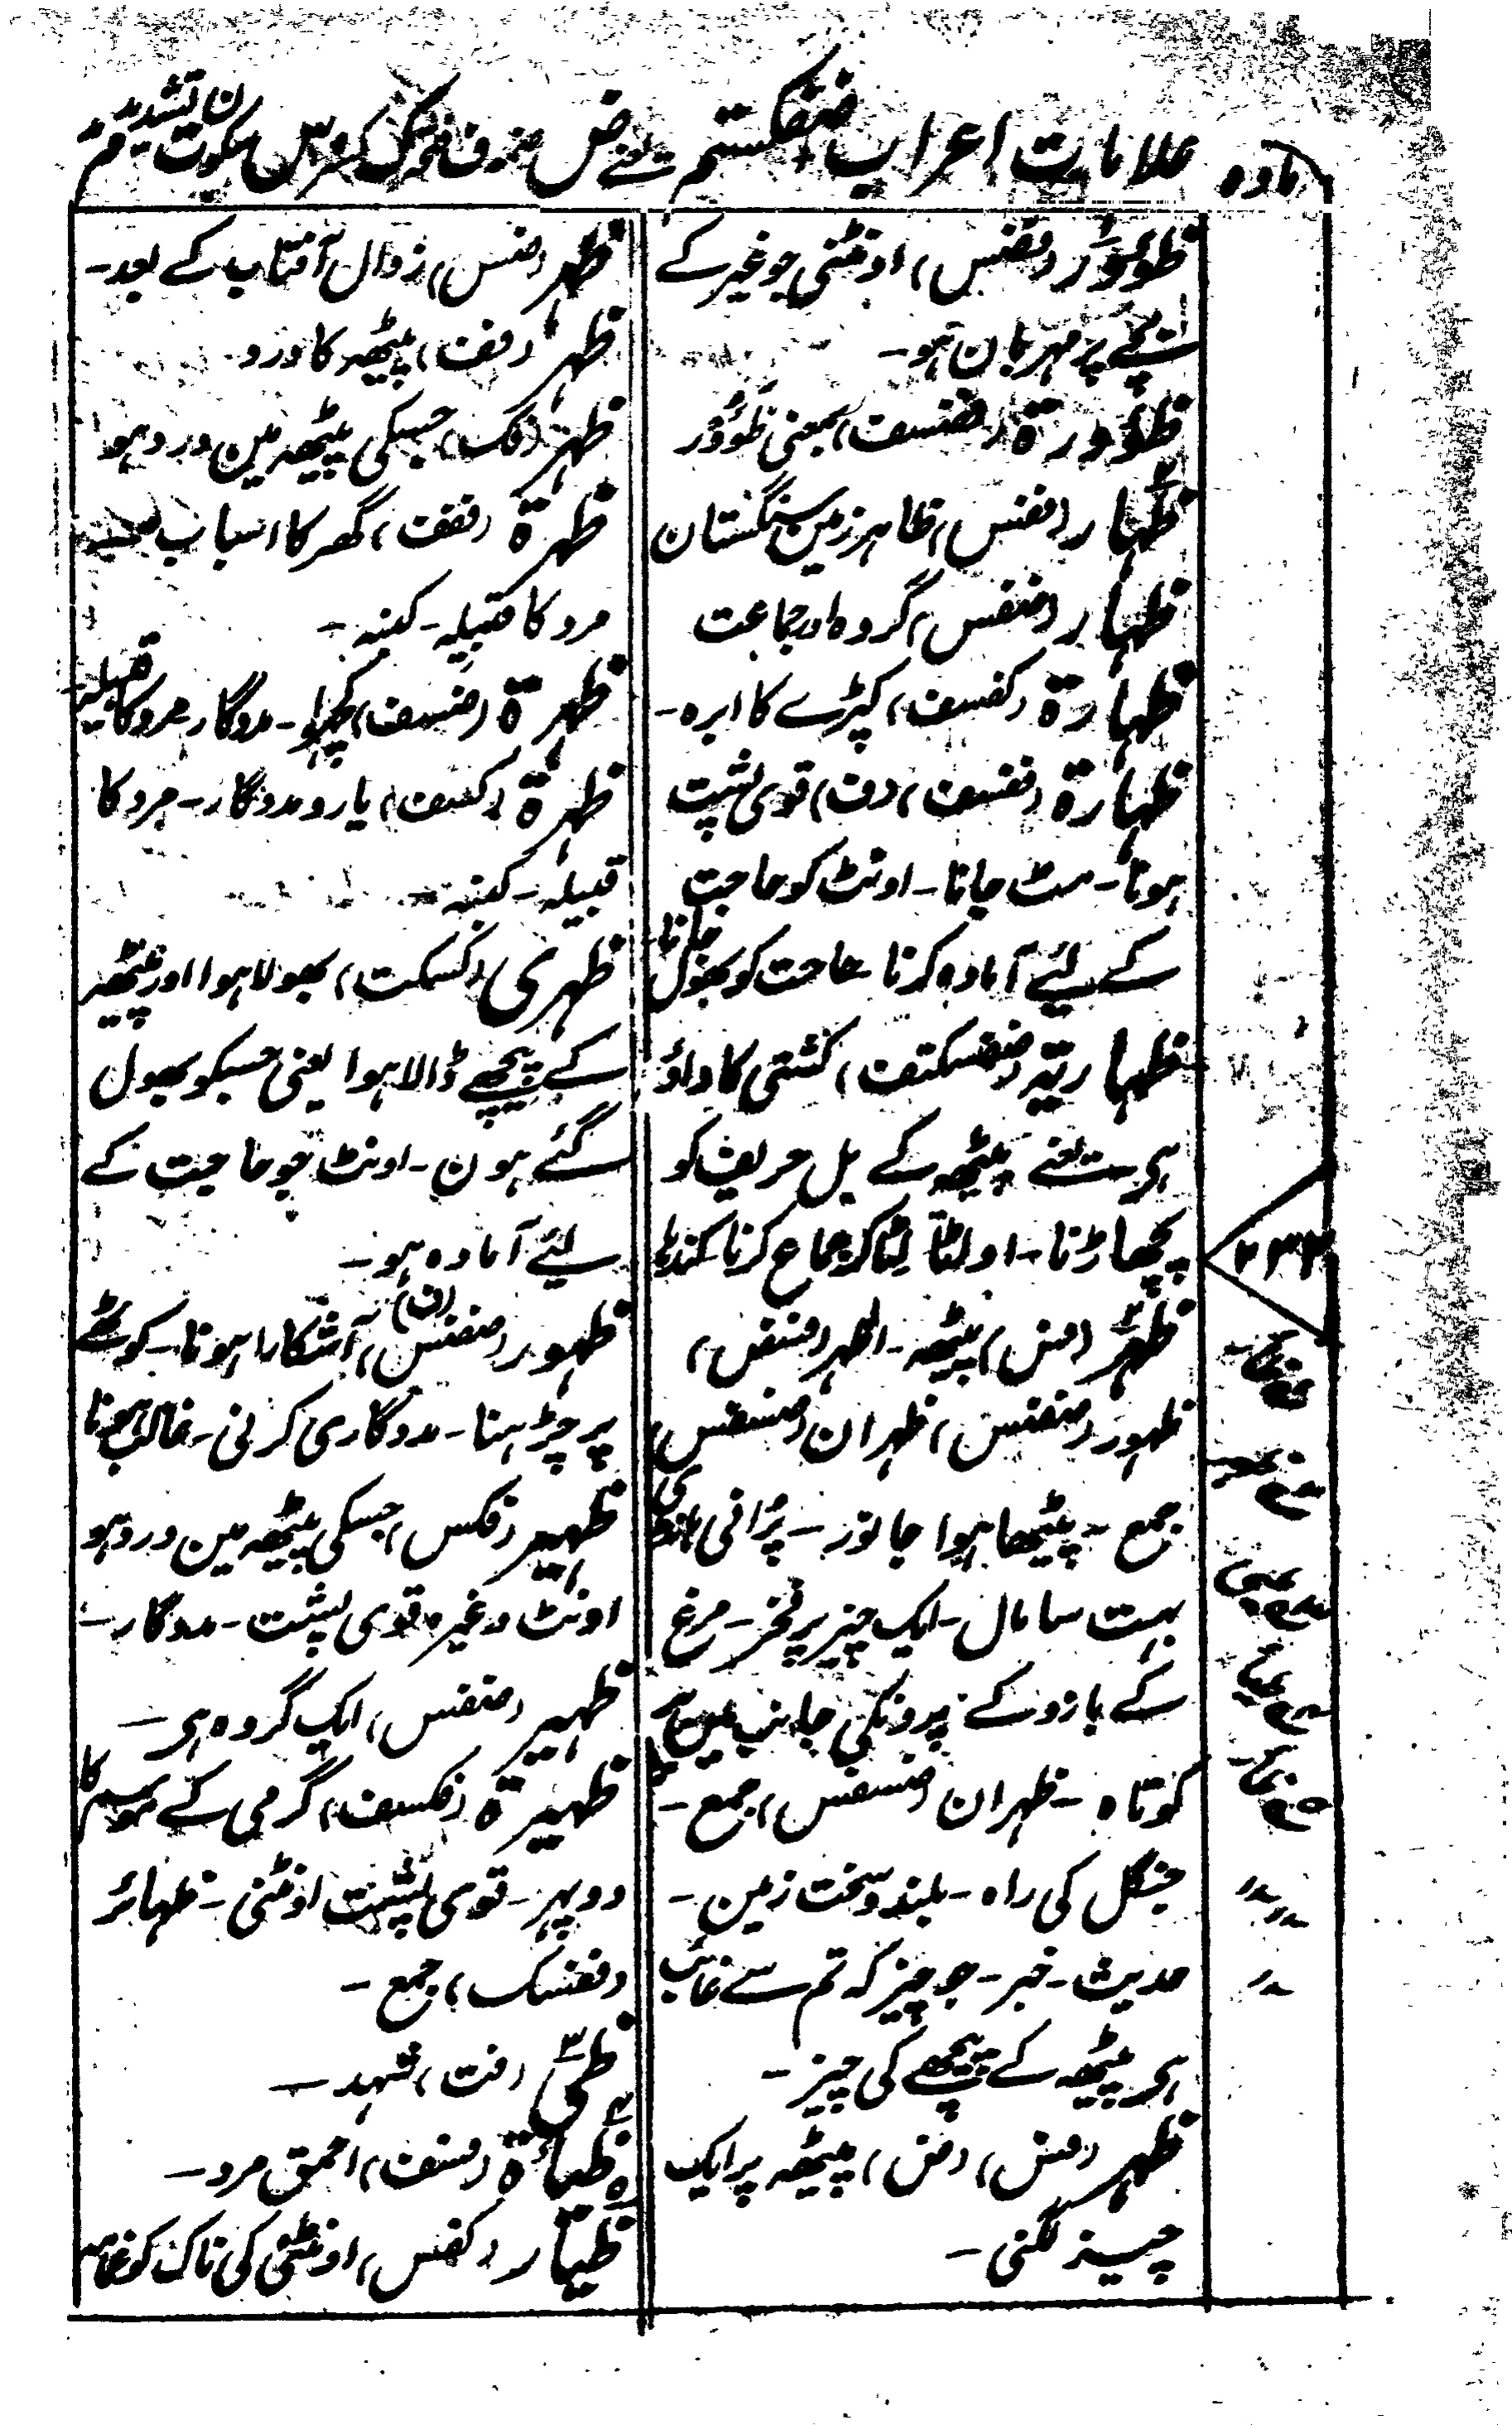 مادہ علامات اعراب
ظوُوَر (فضس) اونٹنی جو غیر کے
بچے پر مہربان ہو۔
ظوُورة (فضسف) بمعنی ظوُور
ظہار (فقس) ظاہر زمین سنگستان
ظہار (ضفس) گروہ اور جماعت
ظہارة (کفسف) کپڑے کا ابرہ۔
ظہارة (ففسف) (ف) قوی پشت
ہونا۔ ہٹ جانا۔ اونٹ کو حاجت
کے لئے آمادہ کرنا حاجت کو بھول جانا
ظہاریة (ضفسکتف) کشتی کا داؤ
ہی یعنے پیٹھ کے بل حریف کو
پچھاڑنا۔ اولٹا لٹا کر جماع کرنا
ظہر (فس) پیٹھ۔ اظہر (فسفس)
ظہور (ضفس) ظہران (ضسفس)
جمع۔ پیٹھا ہوا جانور۔ پرانی ہانڈی
بہت سا مال۔ ایک چیز پر فخر۔ مرغ
کے بازو کے پرونکی جانب مین سے
کوتاہ۔ ظہران (ضسفس) جمع۔
جنگل کی راہ۔ بلند و سخت زمین۔
حدیث۔ خبر۔ جو چیز کہ تم سے غائب
ہی پیٹھ کے پیچھے کی چیز۔
ظہر (فس) (ف) پیٹھ پر ایک
چیز لگنی۔
ظہر (ضس) زوال آفتاب کے بعد۔
ظہر (فف) پیٹھ کا درد۔
ظہر (فک) جسکی پیٹھ مین درد ہو
ظہرة (ففف) گھر کا اسباب
مرد کا قبیلہ۔ کنبہ۔
ظہرة (ضسف) کچھوا۔ مددگار۔ مرد کا قبیلہ
ظہرة (کسف) یار و مددگار۔ مرد کا
قبیلہ۔ کنبہ۔
ظہری (کسکت) بھولا ہوا اور پیٹھ
کے پیچھے ڈالا ہوا یعنی جسکو بھول
گئے ہون۔ اونٹ جو حاجت کے
لئے آمادہ ہو۔
ظہور (ضفس) (ف) آشکارا ہونا۔ کوٹھے
پر چڑہنا۔ مددگاری کرنی۔ غالب ہونا
ظہیر (فکس) جسکی پیٹھ مین درد ہو
اونٹ وغیرہ قوی پشت۔ مددگار۔
ظہیر (ضفس) ایک گروہ ہی۔
ظہیرة (فکسف) گرمی کے موسم کا
دوپہر۔ قوی پشت اونٹنی۔ ظہائر
(ففسک) جمع۔
ظی (فت) شہد۔
ظیأة (فسف) احمق مرد۔
ظیار (کفس) اونٹنی کی ناک کو